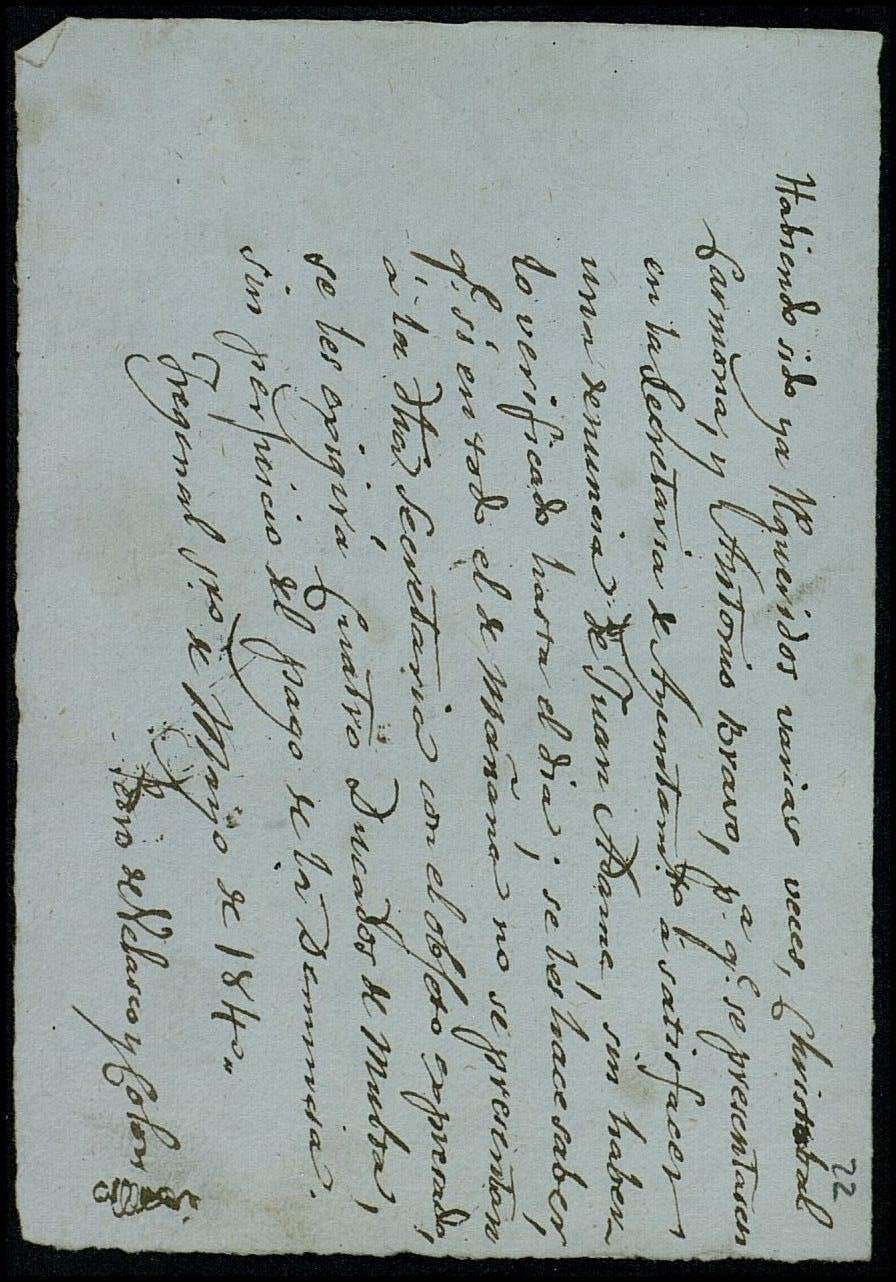 22
Habiendo sido ya Rqueridos varias veces, Christobal
Carmona, y Antonio Bravo, p.a q.e se presentasen
en la Secretaria de Ayuntam.to a satisfacer
una denuncia de Juan Adame, sin haber-
lo verificado hasta el dia; se les hace saber,
q.e si en todo el de Mañana no se presentan
a la dha Secretaria con el objeto expresado,
se les exigira Cuatro Ducados de Multa,
sin perjuicio del pago de la Denuncia.
Fregenal de Mayo de 184
de Velasco y Colon